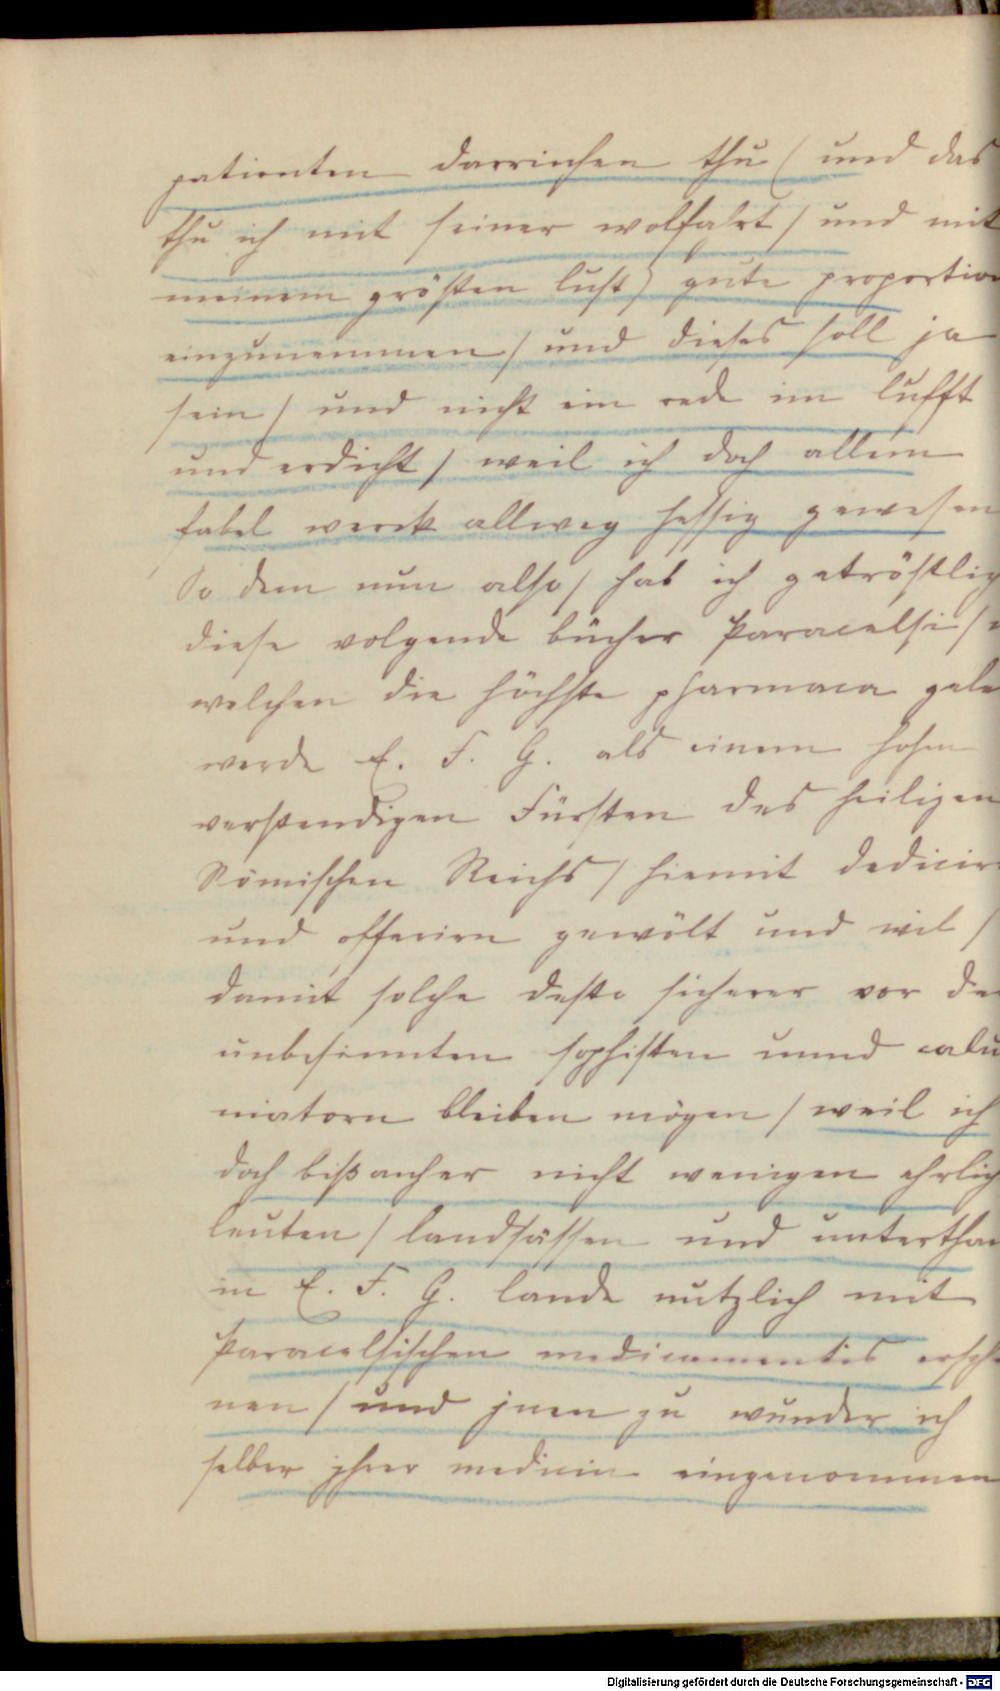 patienten darreichen thu / und das
thu ich mit seiner wolfahrt / und mit
meinem grösten lust) gute proportion
einzunemmen / und dieses soll ja
sein / und nicht ein red im lufft
und erdicht / weil ich doch allem
fabel werck allweg hessig gewesen
So dem nun also / hab ich getröstlig
diese volgende bücher Paracelsi /
welchen die höchste pharmaca gele
werde E. F. G. als einem hohen
verstendigen Fürsten des heiligen
Römischen Reichs / hiemit dedicir
und offeriren gewölt und wil /
damit solche desto sicherer vor de
unbesinnten sophisten unnd calu
niatorn bleiben mögen / weil ich
doch bißanher nicht wenigen ehrlig
leuten / landsässen und unterthan
in E. F. G. lande nutzlich mit
Paracelsischen medicamentis ersch
nen / und jnen zu wunder ich
selber jhrer medicin eingenommen
Digitalisierung gefördert durch die Deutsche Forschungsgemeinschaft - DFG